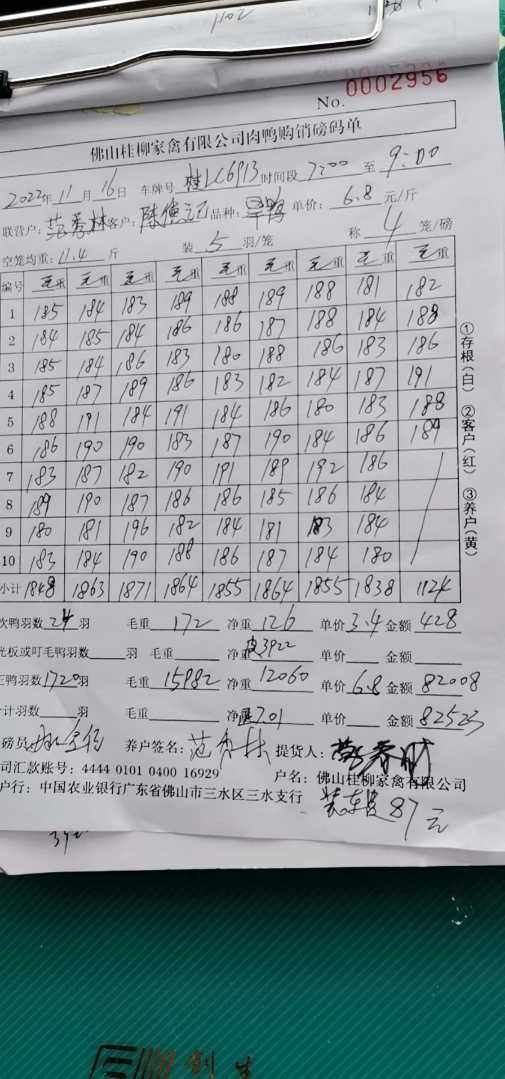 1102
No. 0002956
佛山桂柳家禽有限公司肉鸭购销磅码单
2022年11月16日 车牌号 桂LC6913 时间段 7:00 至 9:00
联营户: 范秀林 客户: 陈德记 品种: 旱鸭 单价: 6.8 元/斤
空笼均重: 11.4 斤 装 5 羽/笼 称 4 笼/磅
编号 毛重 毛重 毛重 毛重 毛重 毛重 毛重 毛重 毛重
1 185 184 183 189 188 189 188 181 182
2 184 185 184 186 186 187 188 184 188
3 185 184 186 183 180 188 186 183 186
4 185 187 189 186 183 182 184 187 191
5 188 191 184 191 184 186 180 183 188
6 186 190 190 183 187 190 184 186 189
7 183 187 182 190 191 189 192 186
8 189 190 187 186 186 185 186 184
9 180 181 196 182 184 181 183 184
10 183 184 190 188 186 187 184 180
小计 1848 1863 1871 1864 1855 1864 1855 1838 1124
①存根(白) ②客户(红) ③养户(黄)
次鸭羽数 24 羽 毛重 172 净重 126 单价 3.4 金额 428
光板或叮毛鸭羽数 羽 毛重 净重 皮3922 单价 金额
正鸭羽数 1720 羽 毛重 15982 净重 12060 单价 6.8 金额 82008
合计羽数 羽 毛重 净重 7.01 单价 金额 82523
磅员 养户签名: 范秀林 提货人:
司汇款账号: 4444 0101 0400 16929 户名: 佛山桂柳家禽有限公司
户行: 中国农业银行广东省佛山市三水区三水支行 装车费87元